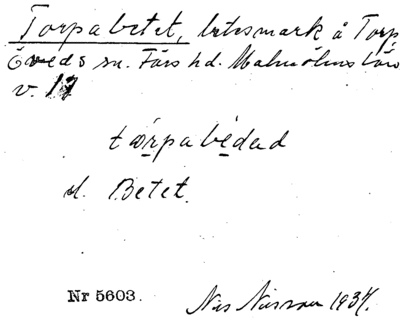 Torpabetet, betesmark å Torp
Öveds sn. Färs hd. Malmöhus län
v. 17
tœrpabedad
sl. Betet.
Nr 5603.
Nils Nilsson 1937.